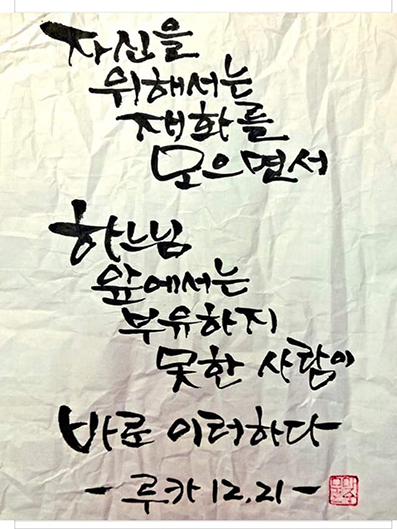 자신을
위해서는
재화를
모으면서
하느님
앞에서는
부유하지
못한 사람이
바로 이러하다
- 루카 12,21 -